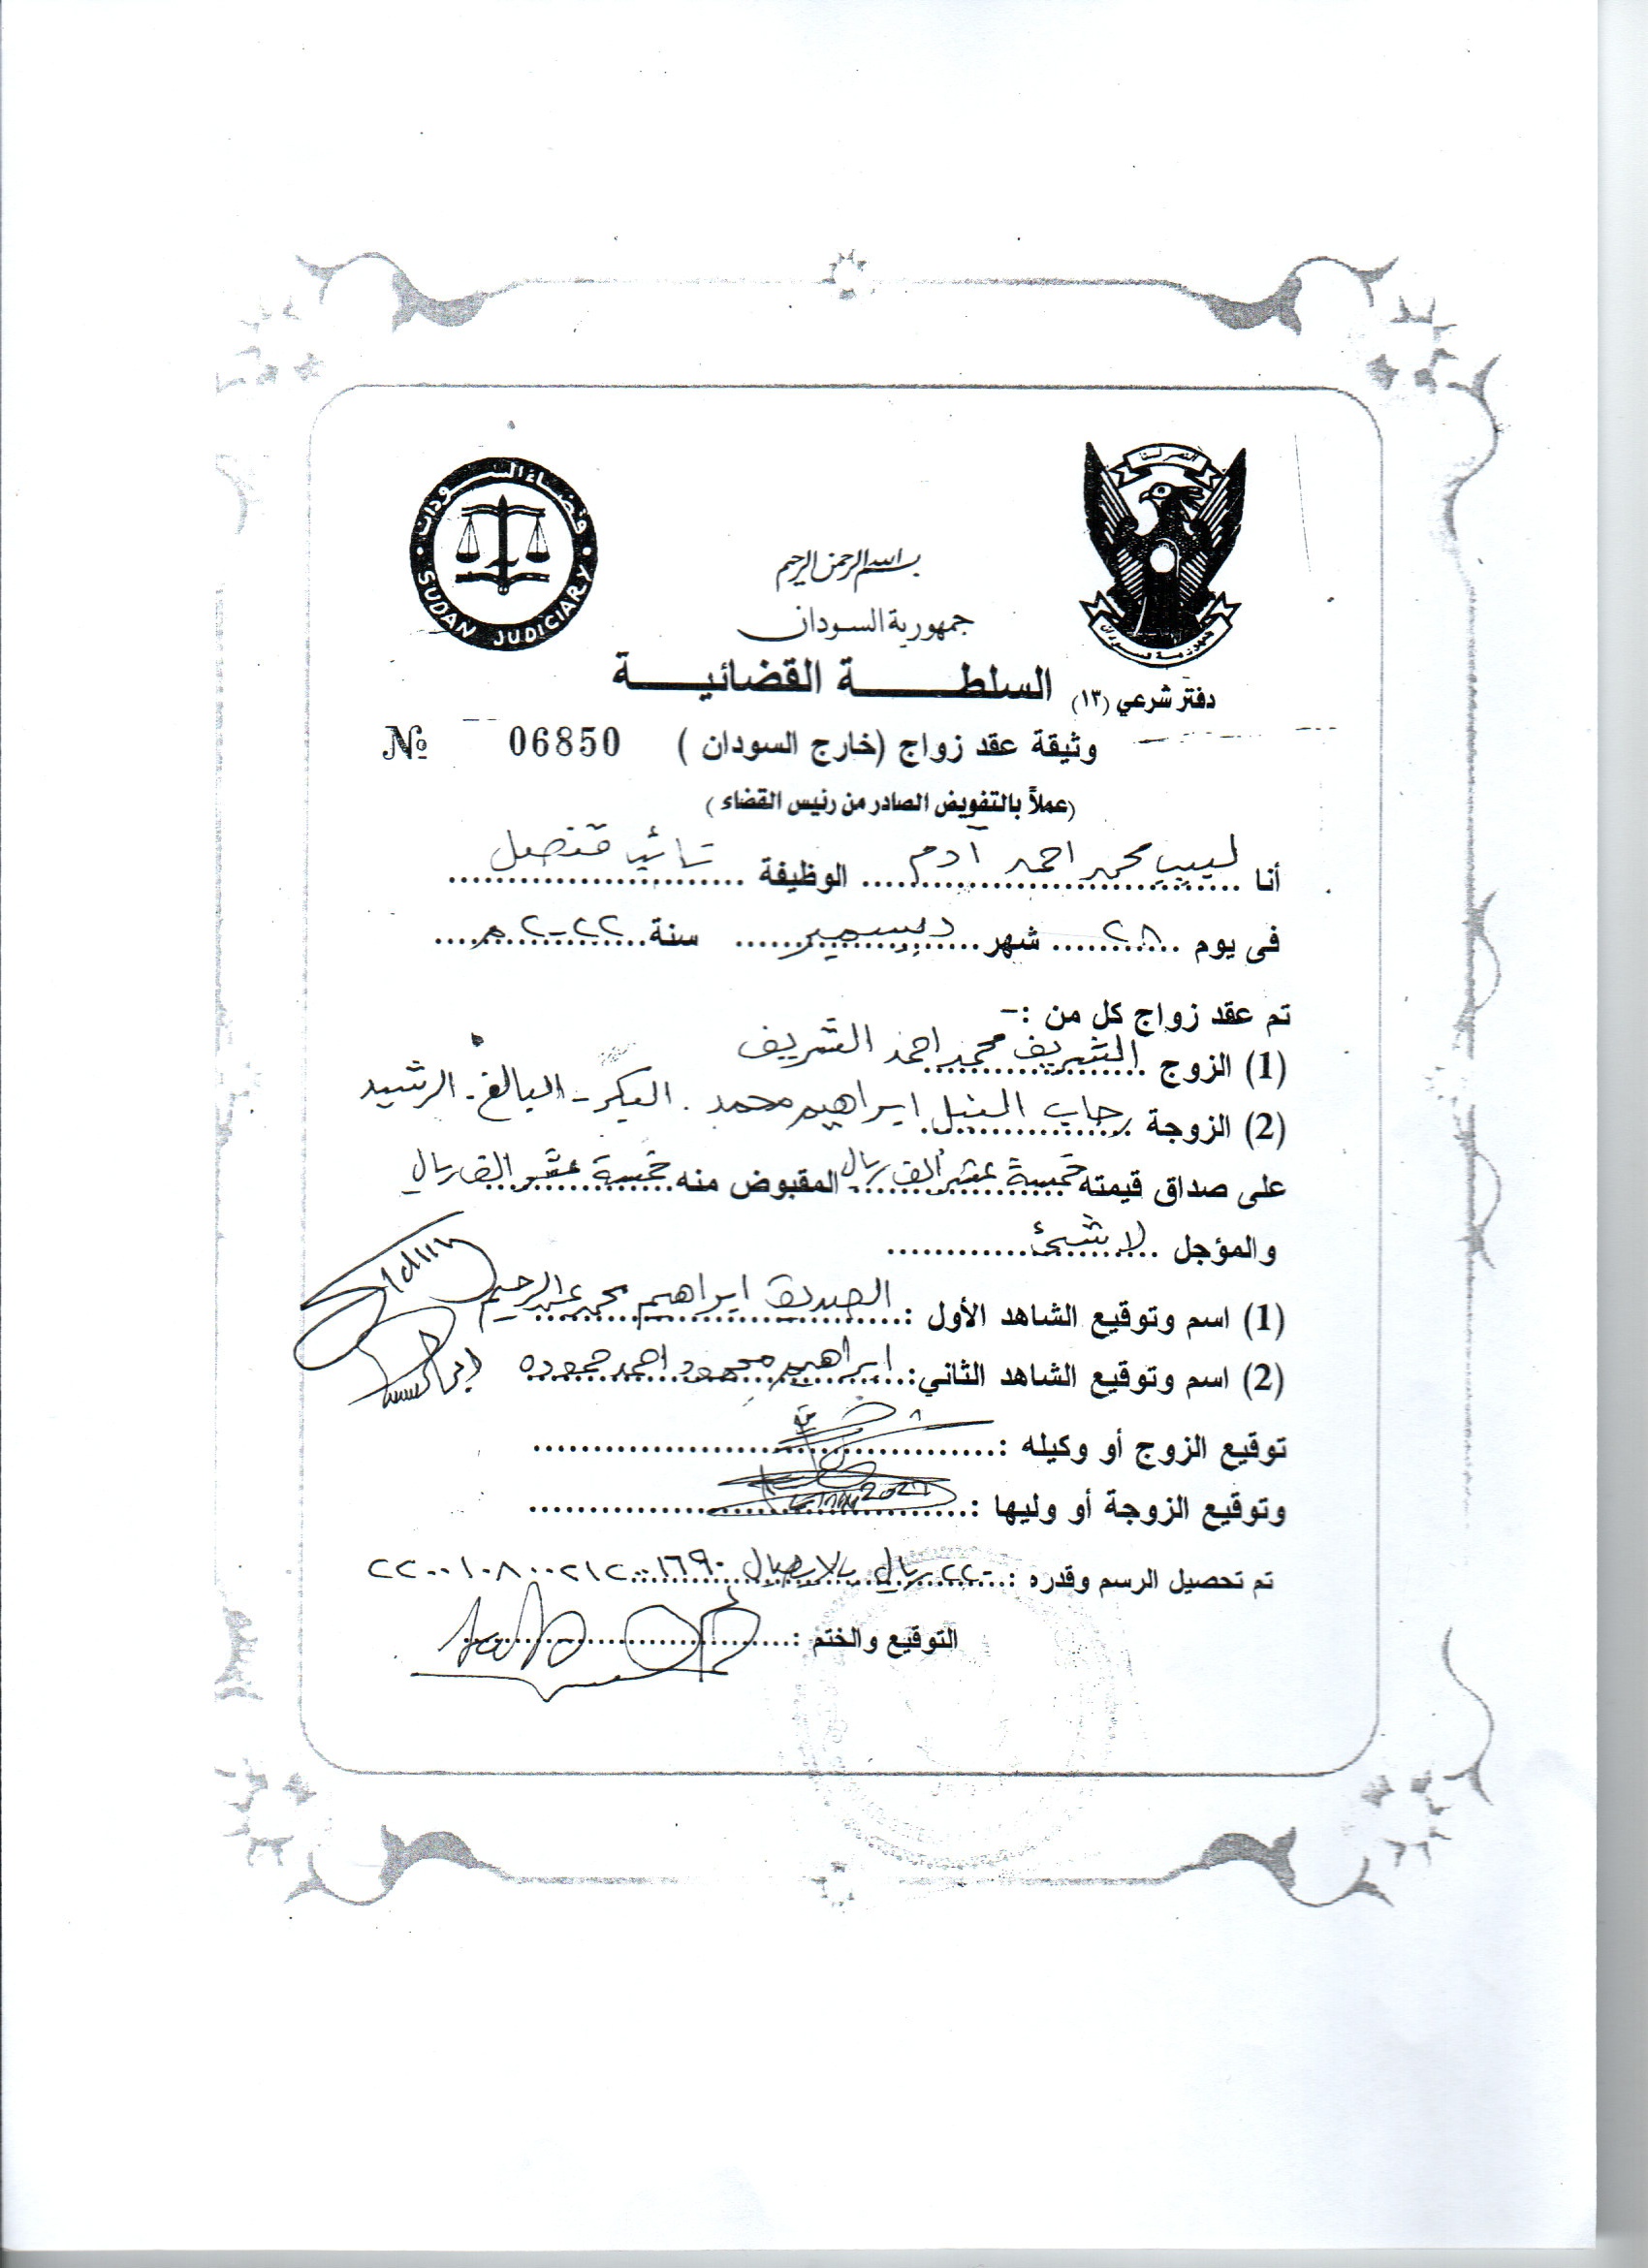 النصر لنا
قضاء السودان
SUDAN JUDICIARY
بسم الله الرحمن الرحيم
جمهورية السودان
جمهورية السودان
السلطة القضائية
دفتر شرعي (١٣)
وثيقة عقد زواج (خارج السودان) № 06850
(عملاً بالتفويض الصادر من رئيس القضاء)
أنا لبيب محمد احمد آدم الوظيفة نائب قنصل
فى يوم ٢٨ شهر ديسمبر سنة ٢٠٢٢م
تم عقد زواج كل من :-
(1) الزوج الشريف محمد احمد الشريف
(2) الزوجة رحاب ابراهيم محمد . البكر - البالغ - الرشيد
على صداق قيمته خمسة عشر ألف ريال المقبوض منه خمسة عشر الف ريال
والمؤجل لا شئ
(1) اسم وتوقيع الشاهد الأول : الصديق ابراهيم محمد عبدالرحيم
(2) اسم وتوقيع الشاهد الثاني: ابراهيم محمود احمد حموده
توقيع الزوج أو وكيله :
وتوقيع الزوجة أو وليها :
تم تحصيل الرسم وقدره : ٢٢٠ ريال بالايصال ٢٢٠٠١٠٨٠٠٢١٢٠٠١٦٩٠
التوقيع والختم :